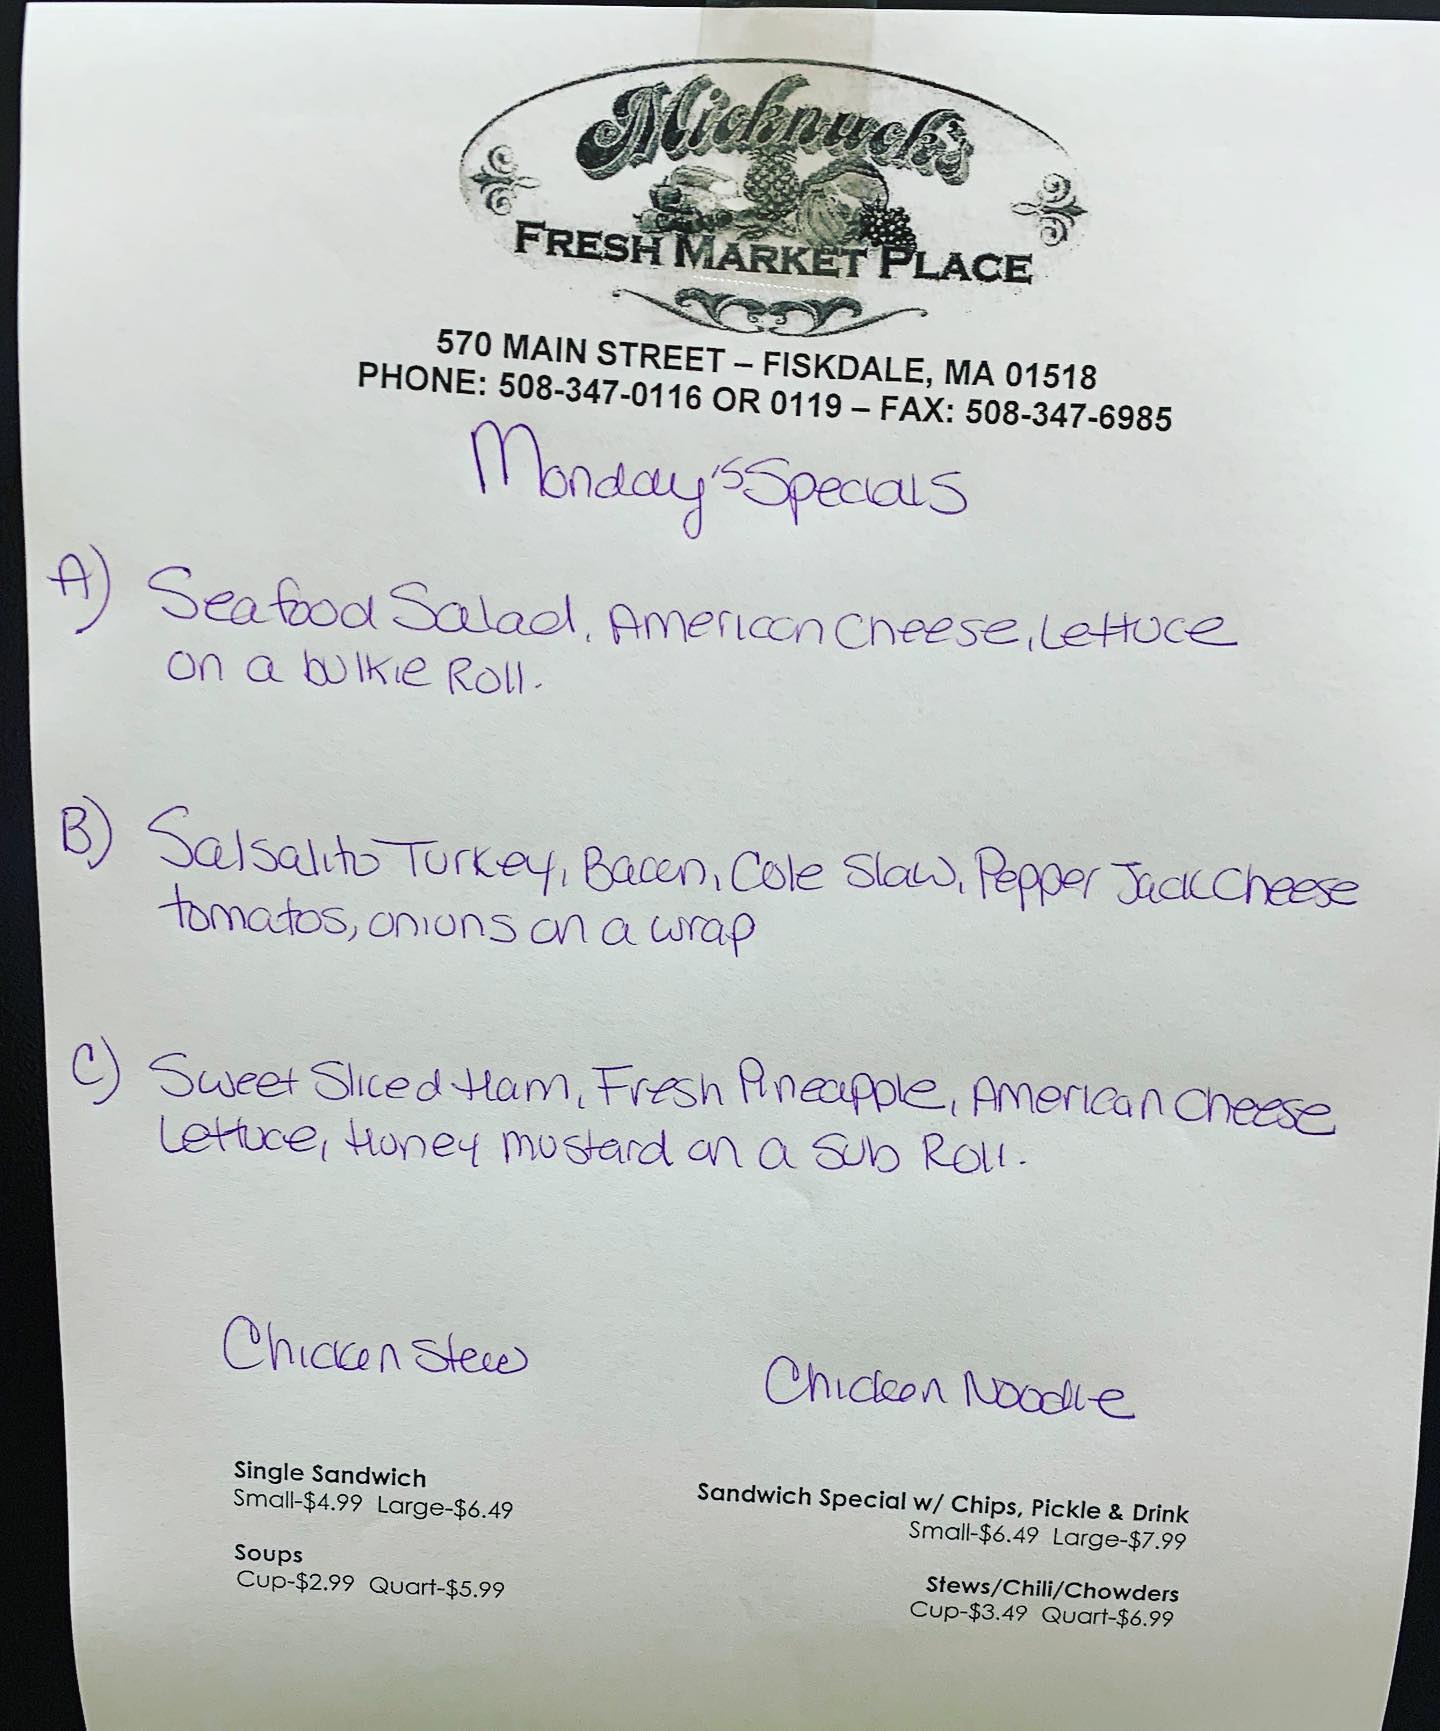 Micknuck's
FRESH MARKET PLACE
570 MAIN STREET – FISKDALE, MA 01518
PHONE: 508-347-0116 OR 0119 – FAX: 508-347-6985
Monday's Specials
A) Seafood Salad, American Cheese, Lettuce
on a bulkie Roll.
B) Salsalito Turkey, Bacon, Cole Slaw, Pepper Jack Cheese
tomatos, onions on a wrap
C) Sweet Sliced Ham, Fresh Pineapple, American Cheese
Lettuce, Honey mustard on a Sub Roll.
Chicken Stew
Chicken Noodle
Single Sandwich
Small-$4.99 Large-$6.49
Soups
Cup-$2.99 Quart-$5.99
Sandwich Special w/ Chips, Pickle & Drink
Small-$6.49 Large-$7.99
Stews/Chili/Chowders
Cup-$3.49 Quart-$6.99